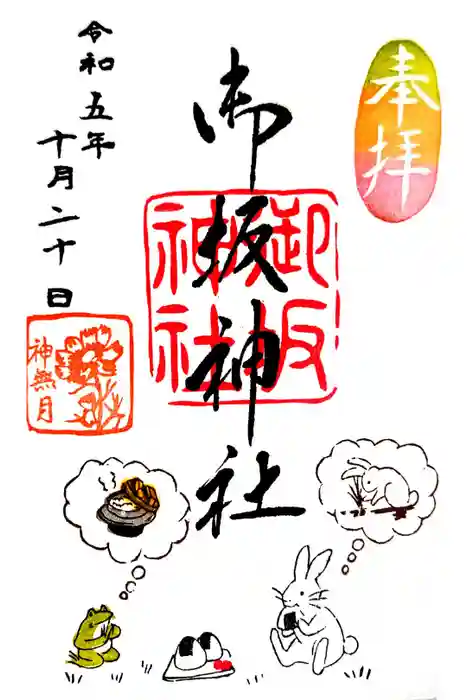 奉拝
御坂神社
御坂神社
令和五年
十月二十日
神無月